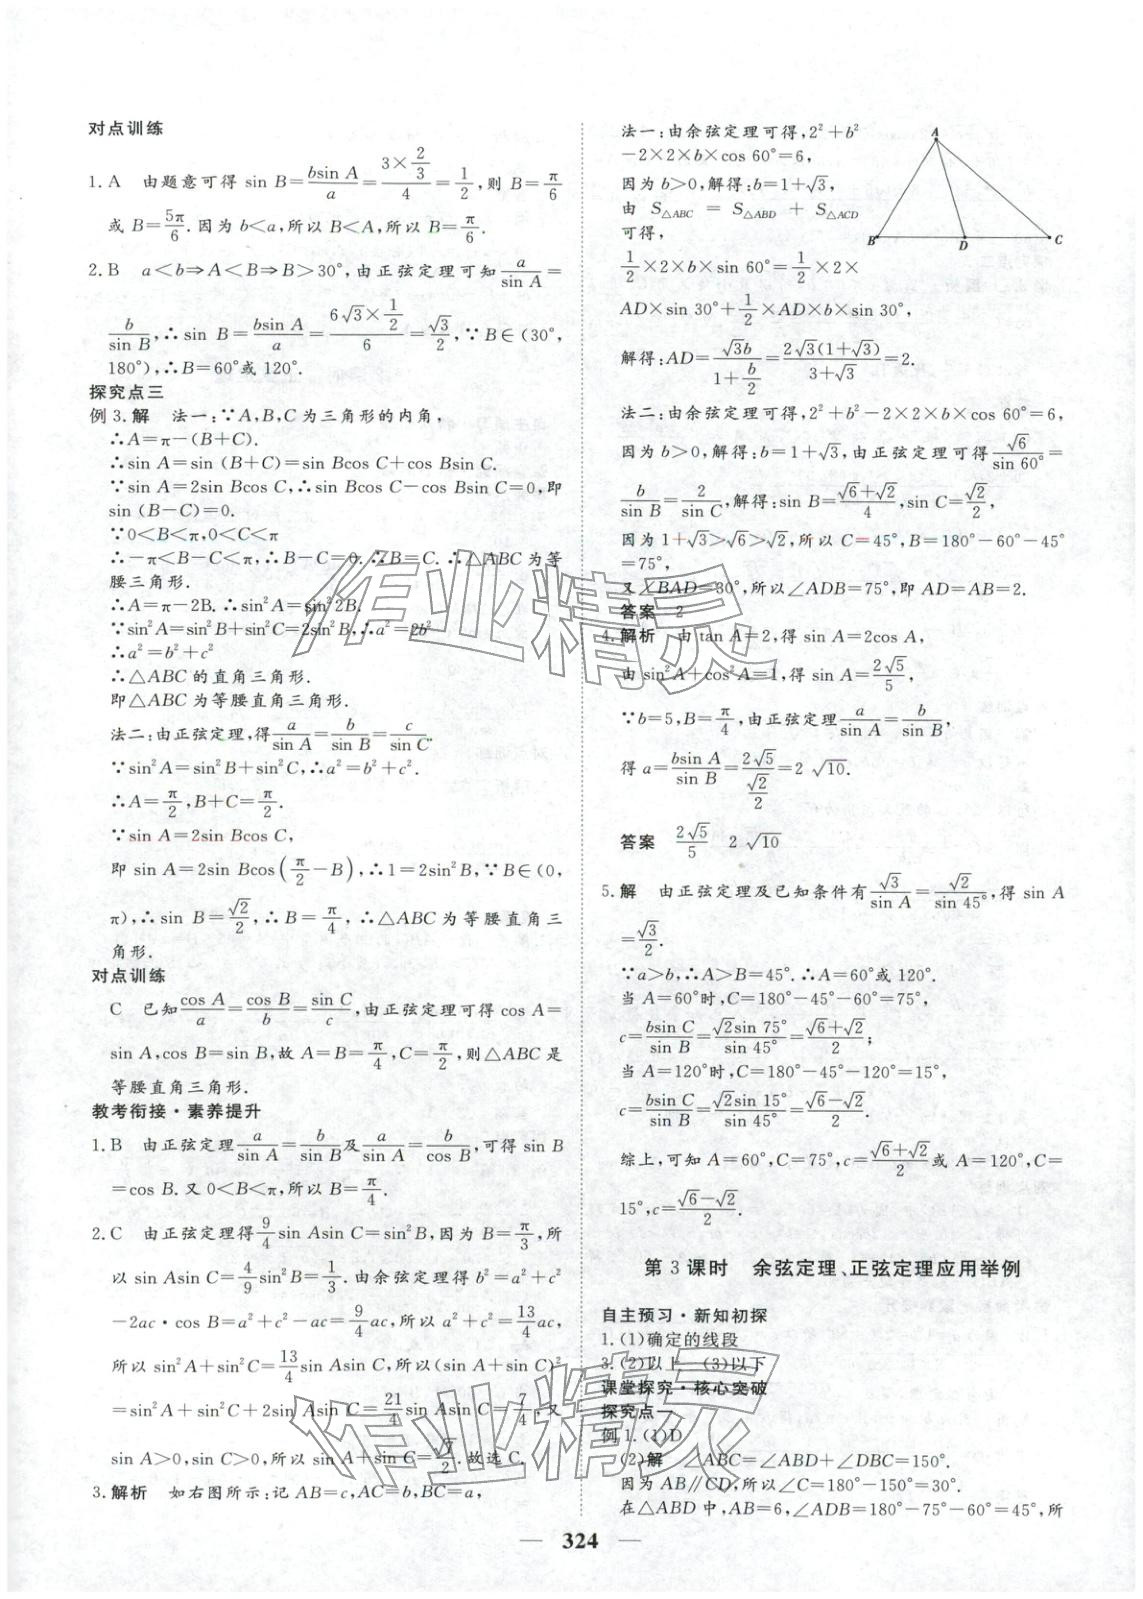 对点训练
1. A　由题意可得 sin B=\frac{bsin A}{a}=\frac{3×\frac{2}{3}}{4}=\frac{1}{2},则 B=\frac{π}{6}
或 B=\frac{5π}{6}.因为 b<a,所以 B<A,所以 B=\frac{π}{6}.
2. B　a<b⇒A<B⇒B>30°,由正弦定理可知\frac{a}{sin A}=
\frac{b}{sin B},∴sin B=\frac{bsin A}{a}=\frac{6√3×\frac{1}{2}}{6}=\frac{√3}{2},∵B∈(30°,
180°),∴B=60°或 120°.
探究点三
例 3.解　法一:∵A,B,C 为三角形的内角,
∴A=π-(B+C).
∴sin A=sin (B+C)=sin Bcos C+cos Bsin C.
∵sin A=2sin Bcos C,∴sin Bcos C-cos Bsin C=0,即
sin (B-C)=0.
∵0<B<π,0<C<π
∴-π<B-C<π,∴B-C=0.∴B=C.∴△ABC 为等
腰三角形.
∴A=π-2B.∴sin²A=sin²2B.
∵sin²A=sin²B+sin²C=2sin²B,∴a²=2b²
∴a²=b²+c²
∴△ABC 的直角三角形.
即△ABC 为等腰直角三角形.
法二:由正弦定理,得\frac{a}{sin A}=\frac{b}{sin B}=\frac{c}{sin C}.
∵sin²A=sin²B+sin²C,∴a²=b²+c².
∴A=\frac{π}{2},B+C=\frac{π}{2}.
∵sin A=2sin Bcos C,
即 sin A=2sin Bcos(\frac{π}{2}-B),∴1=2sin²B,∵B∈(0,
π),∴sin B=\frac{√2}{2},∴B=\frac{π}{4},∴△ABC 为等腰直角三
角形.
对点训练
C　已知\frac{cos A}{a}=\frac{cos B}{b}=\frac{sin C}{c},由正弦定理可得 cos A=
sin A,cos B=sin B,故 A=B=\frac{π}{4},C=\frac{π}{2},则△ABC 是
等腰直角三角形.
教考衔接·素养提升
1. B　由正弦定理\frac{a}{sin A}=\frac{b}{sin B}及\frac{a}{sin A}=\frac{b}{cos B},可得 sin B
=cos B.又 0<B<π,所以 B=\frac{π}{4}.
2. C　由正弦定理得\frac{9}{4}sin Asin C=sin²B,因为 B=\frac{π}{3},所
以 sin Asin C=\frac{4}{9}sin²B=\frac{1}{3}.由余弦定理得 b²=a²+c²
-2ac·cos B=a²+c²-ac=\frac{9}{4}ac,所以 a²+c²=\frac{13}{4}ac,
所以 sin²A+sin²C=\frac{13}{4}sin Asin C,所以(sin A+sin C)²
=sin²A+sin²C+2sin Asin C=\frac{21}{4}sin Asin C=\frac{7}{4},又
sin A>0,sin C>0,所以 sin A+sin C=\frac{√7}{2}.故选 C.
3. 解析　如右图所示:记 AB=c,AC=b,BC=a,
法一:由余弦定理可得,2²+b²
-2×2×b×cos 60°=6,
因为 b>0,解得:b=1+√3,
由 S△ABC = S△ABD + S△ACD
可得,
\frac{1}{2}×2×b×sin 60°=\frac{1}{2}×2×
AD×sin 30°+\frac{1}{2}×AD×b×sin 30°,
解得:AD=\frac{√3b}{1+\frac{b}{2}}=\frac{2√3(1+√3)}{3+√3}=2.
A
B
D
C
法二:由余弦定理可得,2²+b²-2×2×b×cos 60°=6,
因为 b>0,解得:b=1+√3,由正弦定理可得\frac{√6}{sin 60°}=
\frac{b}{sin B}=\frac{2}{sin C},解得:sin B=\frac{√6+√2}{4},sin C=\frac{√2}{2},
因为 1+√3>√6>√2,所以 C=45°,B=180°-60°-45°
=75°,
又∠BAD=30°,所以∠ADB=75°,即 AD=AB=2.
答案　2
4. 解析　由 tan A=2,得 sin A=2cos A,
由 sin²A+cos²A=1,得 sin A=\frac{2√5}{5},
∵b=5,B=\frac{π}{4},由正弦定理\frac{a}{sin A}=\frac{b}{sin B},
得 a=\frac{bsin A}{sin B}=\frac{2√5}{\frac{√2}{2}}=2 √10.
答案　\frac{2√5}{5}　2 √10
5. 解　由正弦定理及已知条件有\frac{√3}{sin A}=\frac{√2}{sin 45°},得 sin A
=\frac{√3}{2}.
∵a>b,∴A>B=45°.∴A=60°或 120°.
当 A=60°时,C=180°-45°-60°=75°,
c=\frac{bsin C}{sin B}=\frac{√2sin 75°}{sin 45°}=\frac{√6+√2}{2};
当 A=120°时,C=180°-45°-120°=15°,
c=\frac{bsin C}{sin B}=\frac{√2sin 15°}{sin 45°}=\frac{√6-√2}{2}.
综上,可知 A=60°,C=75°,c=\frac{√6+√2}{2}或 A=120°,C=
15°,c=\frac{√6-√2}{2}.
第 3 课时　余弦定理、正弦定理应用举例
自主预习·新知初探
1. (1)确定的线段
3. (2)以上　(3)以下
课堂探究·核心突破
探究点一
例 1. (1)D
(2)解　∠ABC=∠ABD+∠DBC=150°.
因为 AB∥CD,所以∠C=180°-150°=30°.
在△ABD 中,AB=6,∠ADB=180°-75°-60°=45°,所
— 324 —
作业精灵
作业精灵